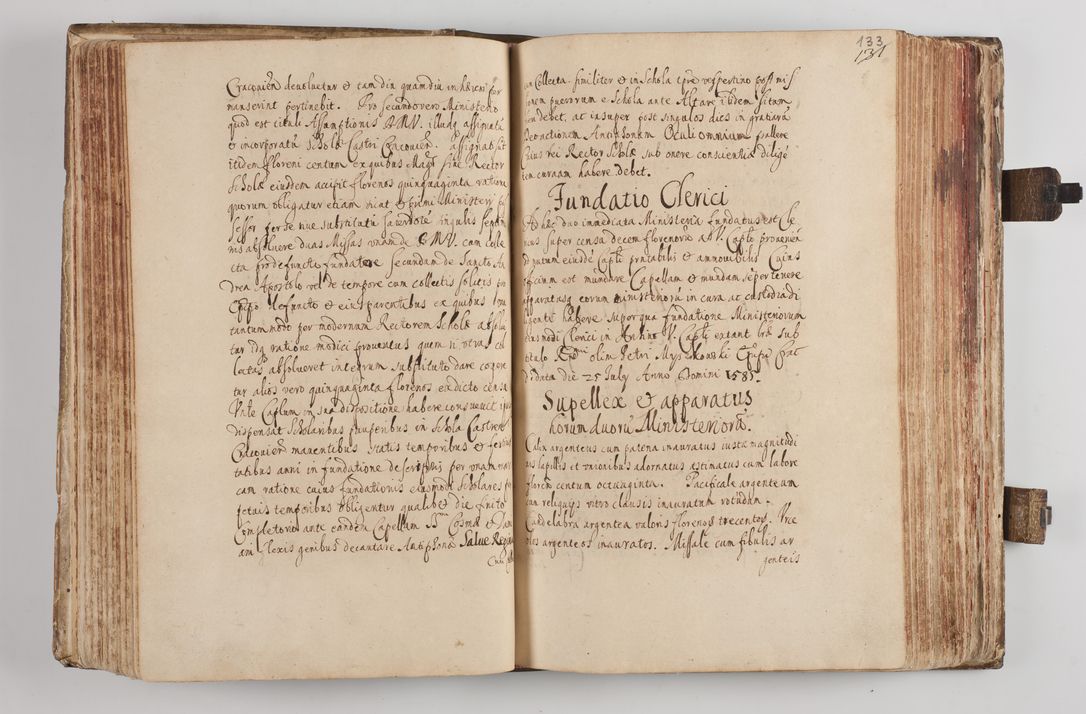 Cracouień deuoluetur & tam diu quamdiu in hæresi per
manserint pertinebit. Pro secundo vero Ministerio
quod est tituli Assumptionis BMV. illud assignatū
& incorporatū Scholæ Castri Cracouień. assignat sūt
itidem floreni centum ex quibus Mag͂r siue Rector
Scholæ eiusdem accipit florenos quinquaginta ratione
quorum obligatur etiam vicat & primi Ministerij
sessor per se siue substitutū sacerdotē singulis
absoluere duas Missas vnam de BMV. cum colle
cta pro defuncto fundatore secundam de Sancto An
drea Apostolo vel de tempore cum collectis solitis pro
Epīpo defuncto & eius parentibus ex quibus
tantummodo per modernum Rectorem Scholæ absolu
tur idq ratione modici prouentus quem si vtras
lectas absolueret integrum substituto dare cogere
tur alios vero quinquaginta florenos ex dicto censu
Vnłe Caplum in sua dispositione habere consueuit
dispensat Scholaribus pauperibus in Schola Castren
Cracouień manentibus statis temporibus & festiui
tatibus anni in fundatione descriptis per vnam mar
cam ratione cuius fundationis eiusmodi Scholares
fetais temporibus obligentur qualibet die finito
Completorio ante eandem Capellam SS. Cosmæ et Dami
ani flexis genibus decantare Antiphonā Salue Regina
Cum
133
131
cum Collecta. similiter & in Schola tp̄re vespertino post mis
ionem puerorum e Schola ante Altare ibidem situm
debet, ac insuper post singulos dies in gratiarū
actionem Antiphonam Oculi omnium psallere
huius rei Rector Scholæ sub onere conscientiæ diligē
tem curaam habere debet.
Fundatio Clerici
Ad hæc duo immediata Ministeria fundatus est Cle
ricus super censu decem florenorū a V. Caplō prouenień
ad nutum eiusdē Capłi præstabilis & ammouibilis Cuius
officium est mundare Capellam & mundam sēper tenere
apparatusq eorum ministeriorū in cura ac custodia di
ligenti habere super qua fundatione Ministeriorum
eiusmodi Clerici in Archiuo V. Capłi extant łræ sub
titulo Rndmi olim Petri Myszkowski Epīpi Crac
d data die 25 July Anno Domini 1585.
Supellex & apparatus
horum duorū Ministeriorū.
Calix argenteus cum patena inauratus iustæ magnitudi
nis lapillis et vnionibus adornatus æstimatus cum labore
floren centum octuaginta. Pacificale argenteum
cum reliquijs vitro clausis inauratum rotundum.
Candelabra argentea valoris florenos trecentos. Vrce
olos argenteos inauratos. Missale cum fibulis ar
genteis